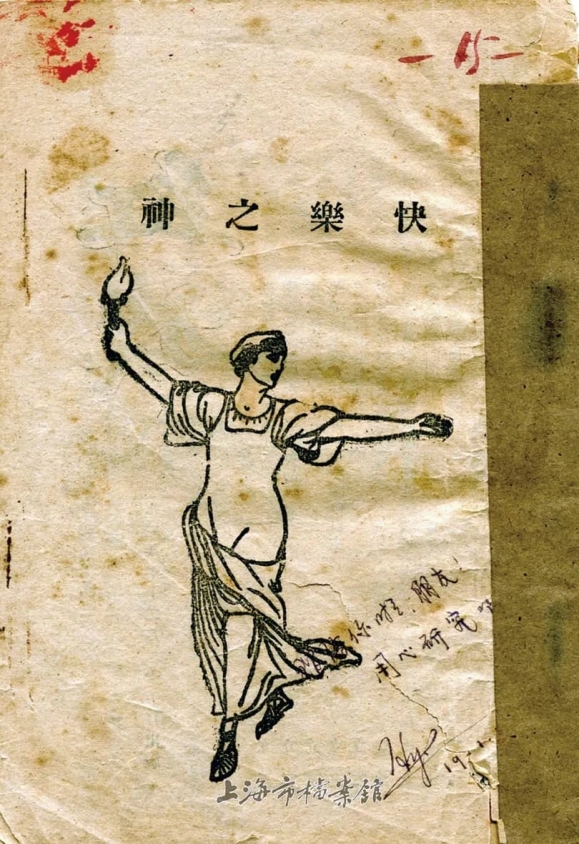 —15—
快樂之神
你吧，朋友！
用心研究
上海市檔案館